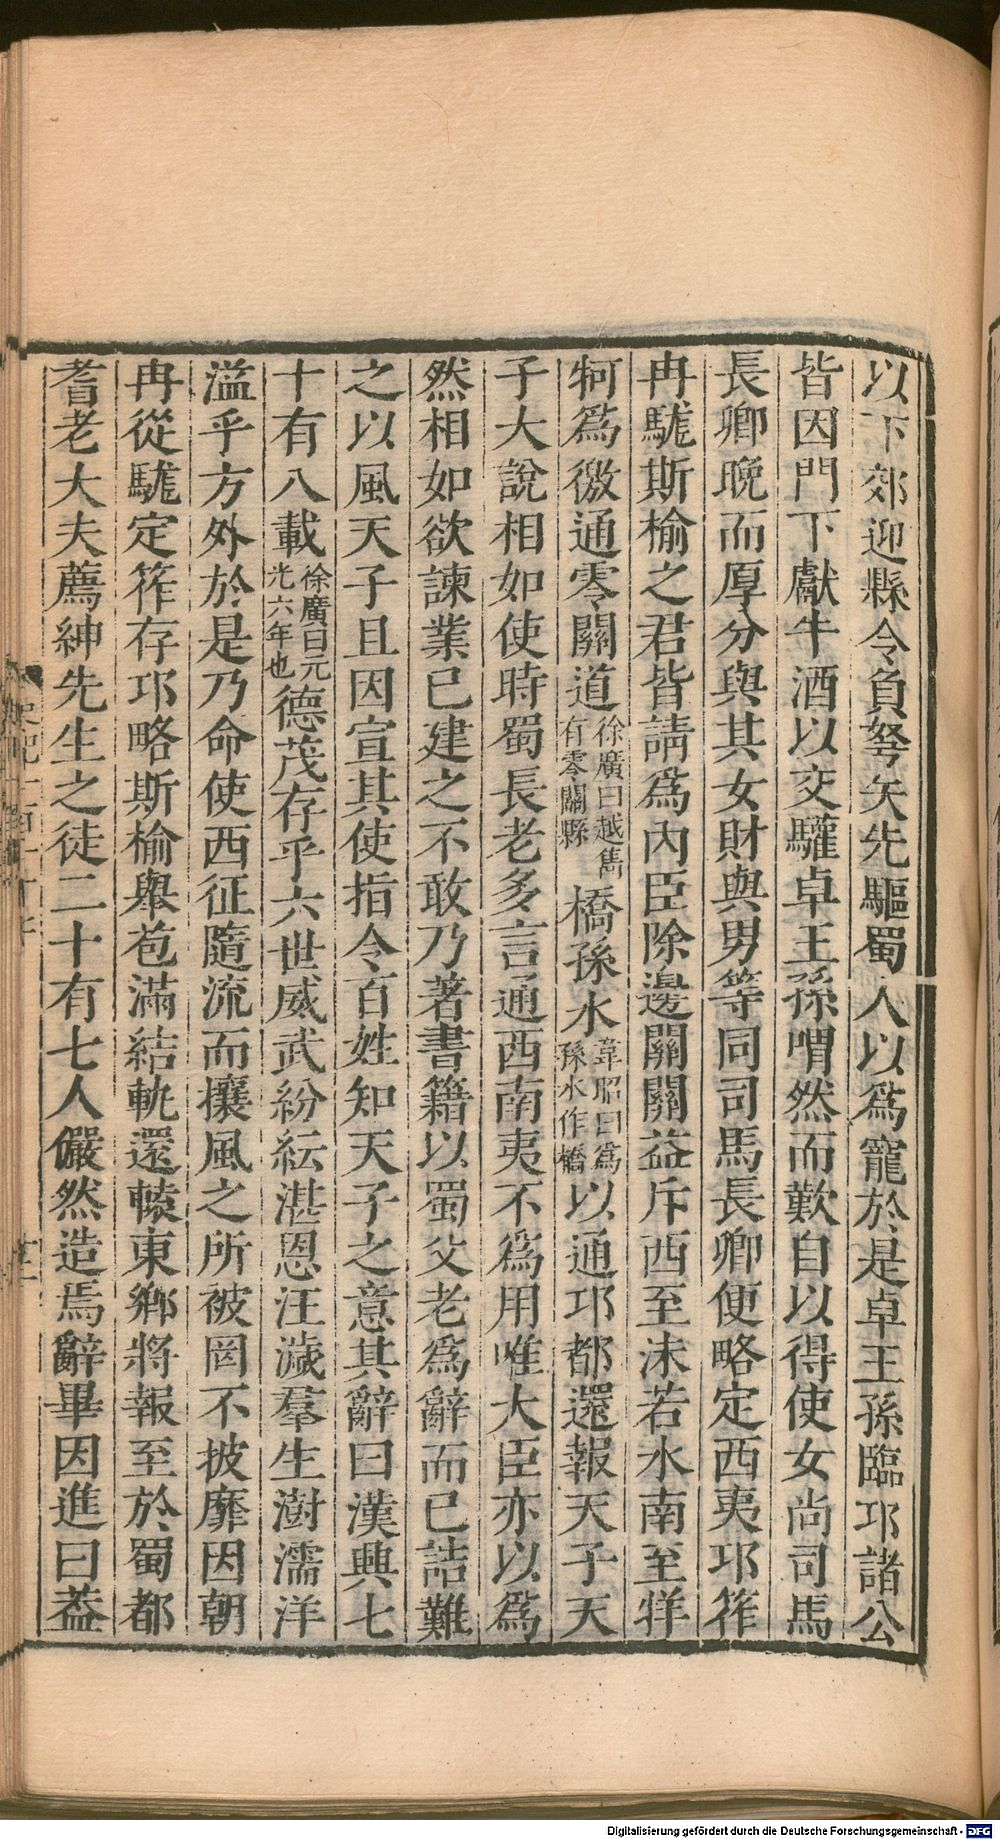 以下郊迎縣令負弩矢先驅蜀人以爲寵於是卓王孫臨邛諸公
皆因門下獻牛酒以交驩卓王孫喟然而歎自以得使女尚司馬
長卿晚而厚分與其女財與男等同司馬長卿便略定西夷邛筰
冉駹斯榆之君皆請爲內臣除邊關關益斥西至沬若水南至牂
牁爲徼通零關道徐廣曰越雋有零關縣橋孫水韋昭曰爲孫水作橋以通邛都還報天子天
子大說相如使時蜀長老多言通西南夷不爲用唯大臣亦以爲
然相如欲諫業已建之不敢乃著書籍以蜀父老爲辭而已詰難
之以風天子且因宣其使指令百姓知天子之意其辭曰漢興七
十有八載徐廣曰元光六年也德茂存乎六世威武紛紜湛恩汪濊羣生澍濡洋
溢乎方外於是乃命使西征隨流而攘風之所被罔不披靡因朝
冉從駹定筰存邛略斯榆舉苞滿結軌還轅東鄉將報至於蜀都
耆老大夫薦紳先生之徒二十有七人儼然造焉辭畢因進曰蓋
Digitalisierung gefördert durch die Deutsche Forschungsgemeinschaft - DFG